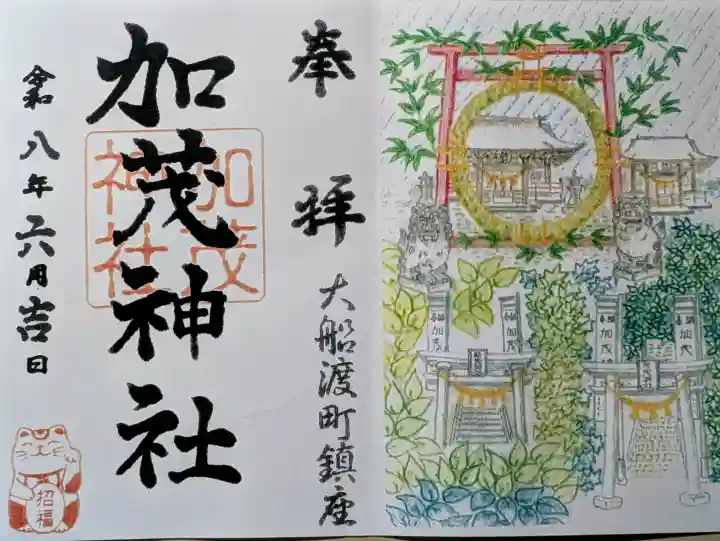 奉拝
大船渡町鎮座
加茂神社
加茂
神社
令和八年六月吉日
招福
加茂
加茂
加茂
加茂